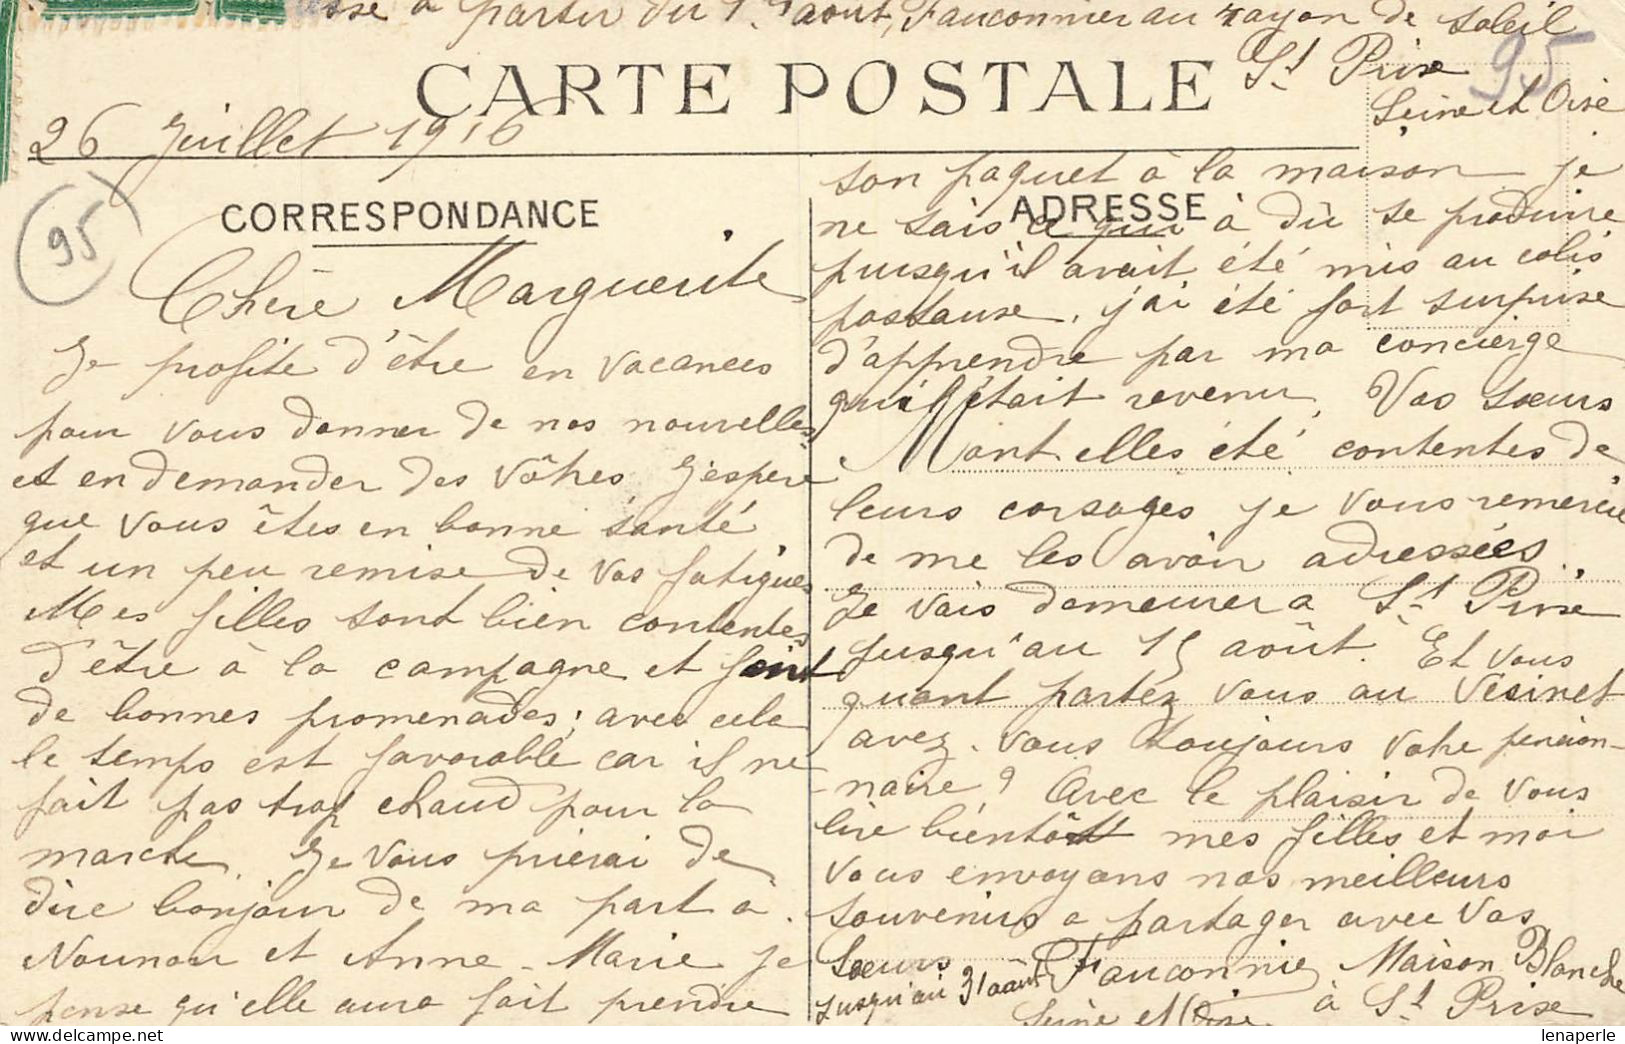 sse à partir du 1er août, Fauconnier au rayon de soleil
St Prix
Seine et Oise
95
CARTE POSTALE
26 Juillet 1916
95
CORRESPONDANCE
Chère Marguerite
Je profite d'être en vacances
pour vous donner de nos nouvelles
et en demander des vôtres. J'espère
que vous êtes en bonne santé
et un peu remise de vos fatigues
Mes filles sont bien contentes
d'être à la campagne et font
de bonnes promenades; avec cela
le temps est favorable car il ne
fait pas trop chaud pour la
marche. Je vous prierai de
dire bonjour de ma part à
Nounou et Anne-Marie je
pense qu'elle aura fait prendre
ADRESSE
son paquet à la maison je
ne sais ce qui à dû se produire
puisqu'il avait été mis au colis
postause, j'ai été fort surprise
d'apprendre par ma concierge
qu'il était revenu. Vos sœurs
ont elles été contentes de
leurs corsages je vous remercie
de me les avoir adressées.
Je vais demeurer à St Prix
jusqu'au 15 août. Et vous
quant partez vous au Vésinet
avez-vous toujours votre pension-
-naire? Avec le plaisir de vous
lire bientôt mes filles et moi
vous envoyons nos meilleurs
souvenirs a partager avec vos
Sœurs F Fauconnier Maison Blanche
jusqu'au 31 août à St Prix
Seine et Oise
lenaperle